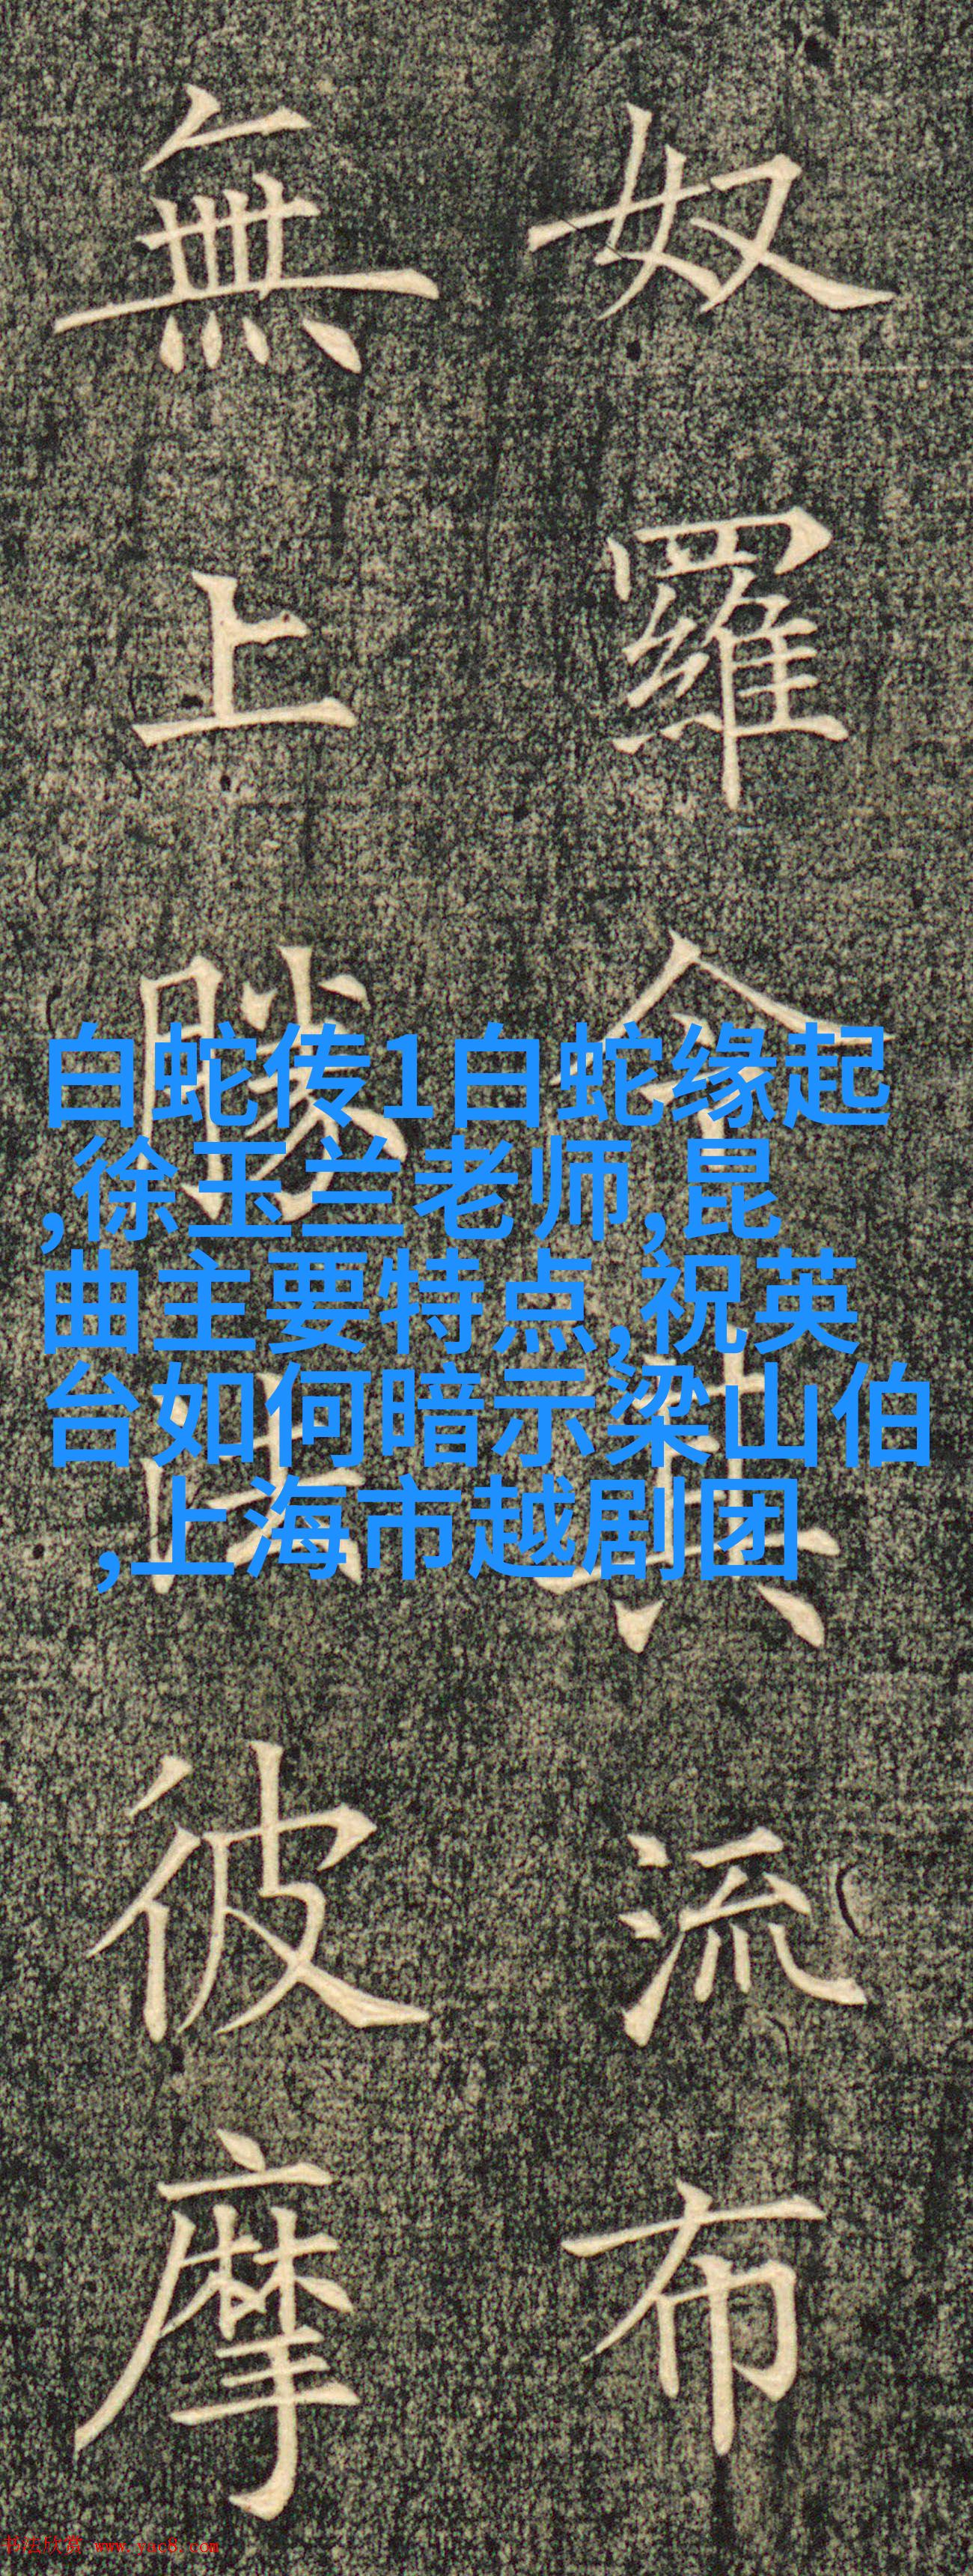 無上勝法彼摩
奴羅令其流布
白蛇传1白蛇缘起
,徐玉兰老师,昆
曲主要特点,祝英
台如何暗示梁山伯
,上海市越剧团
书法欣赏 www.yac8.com